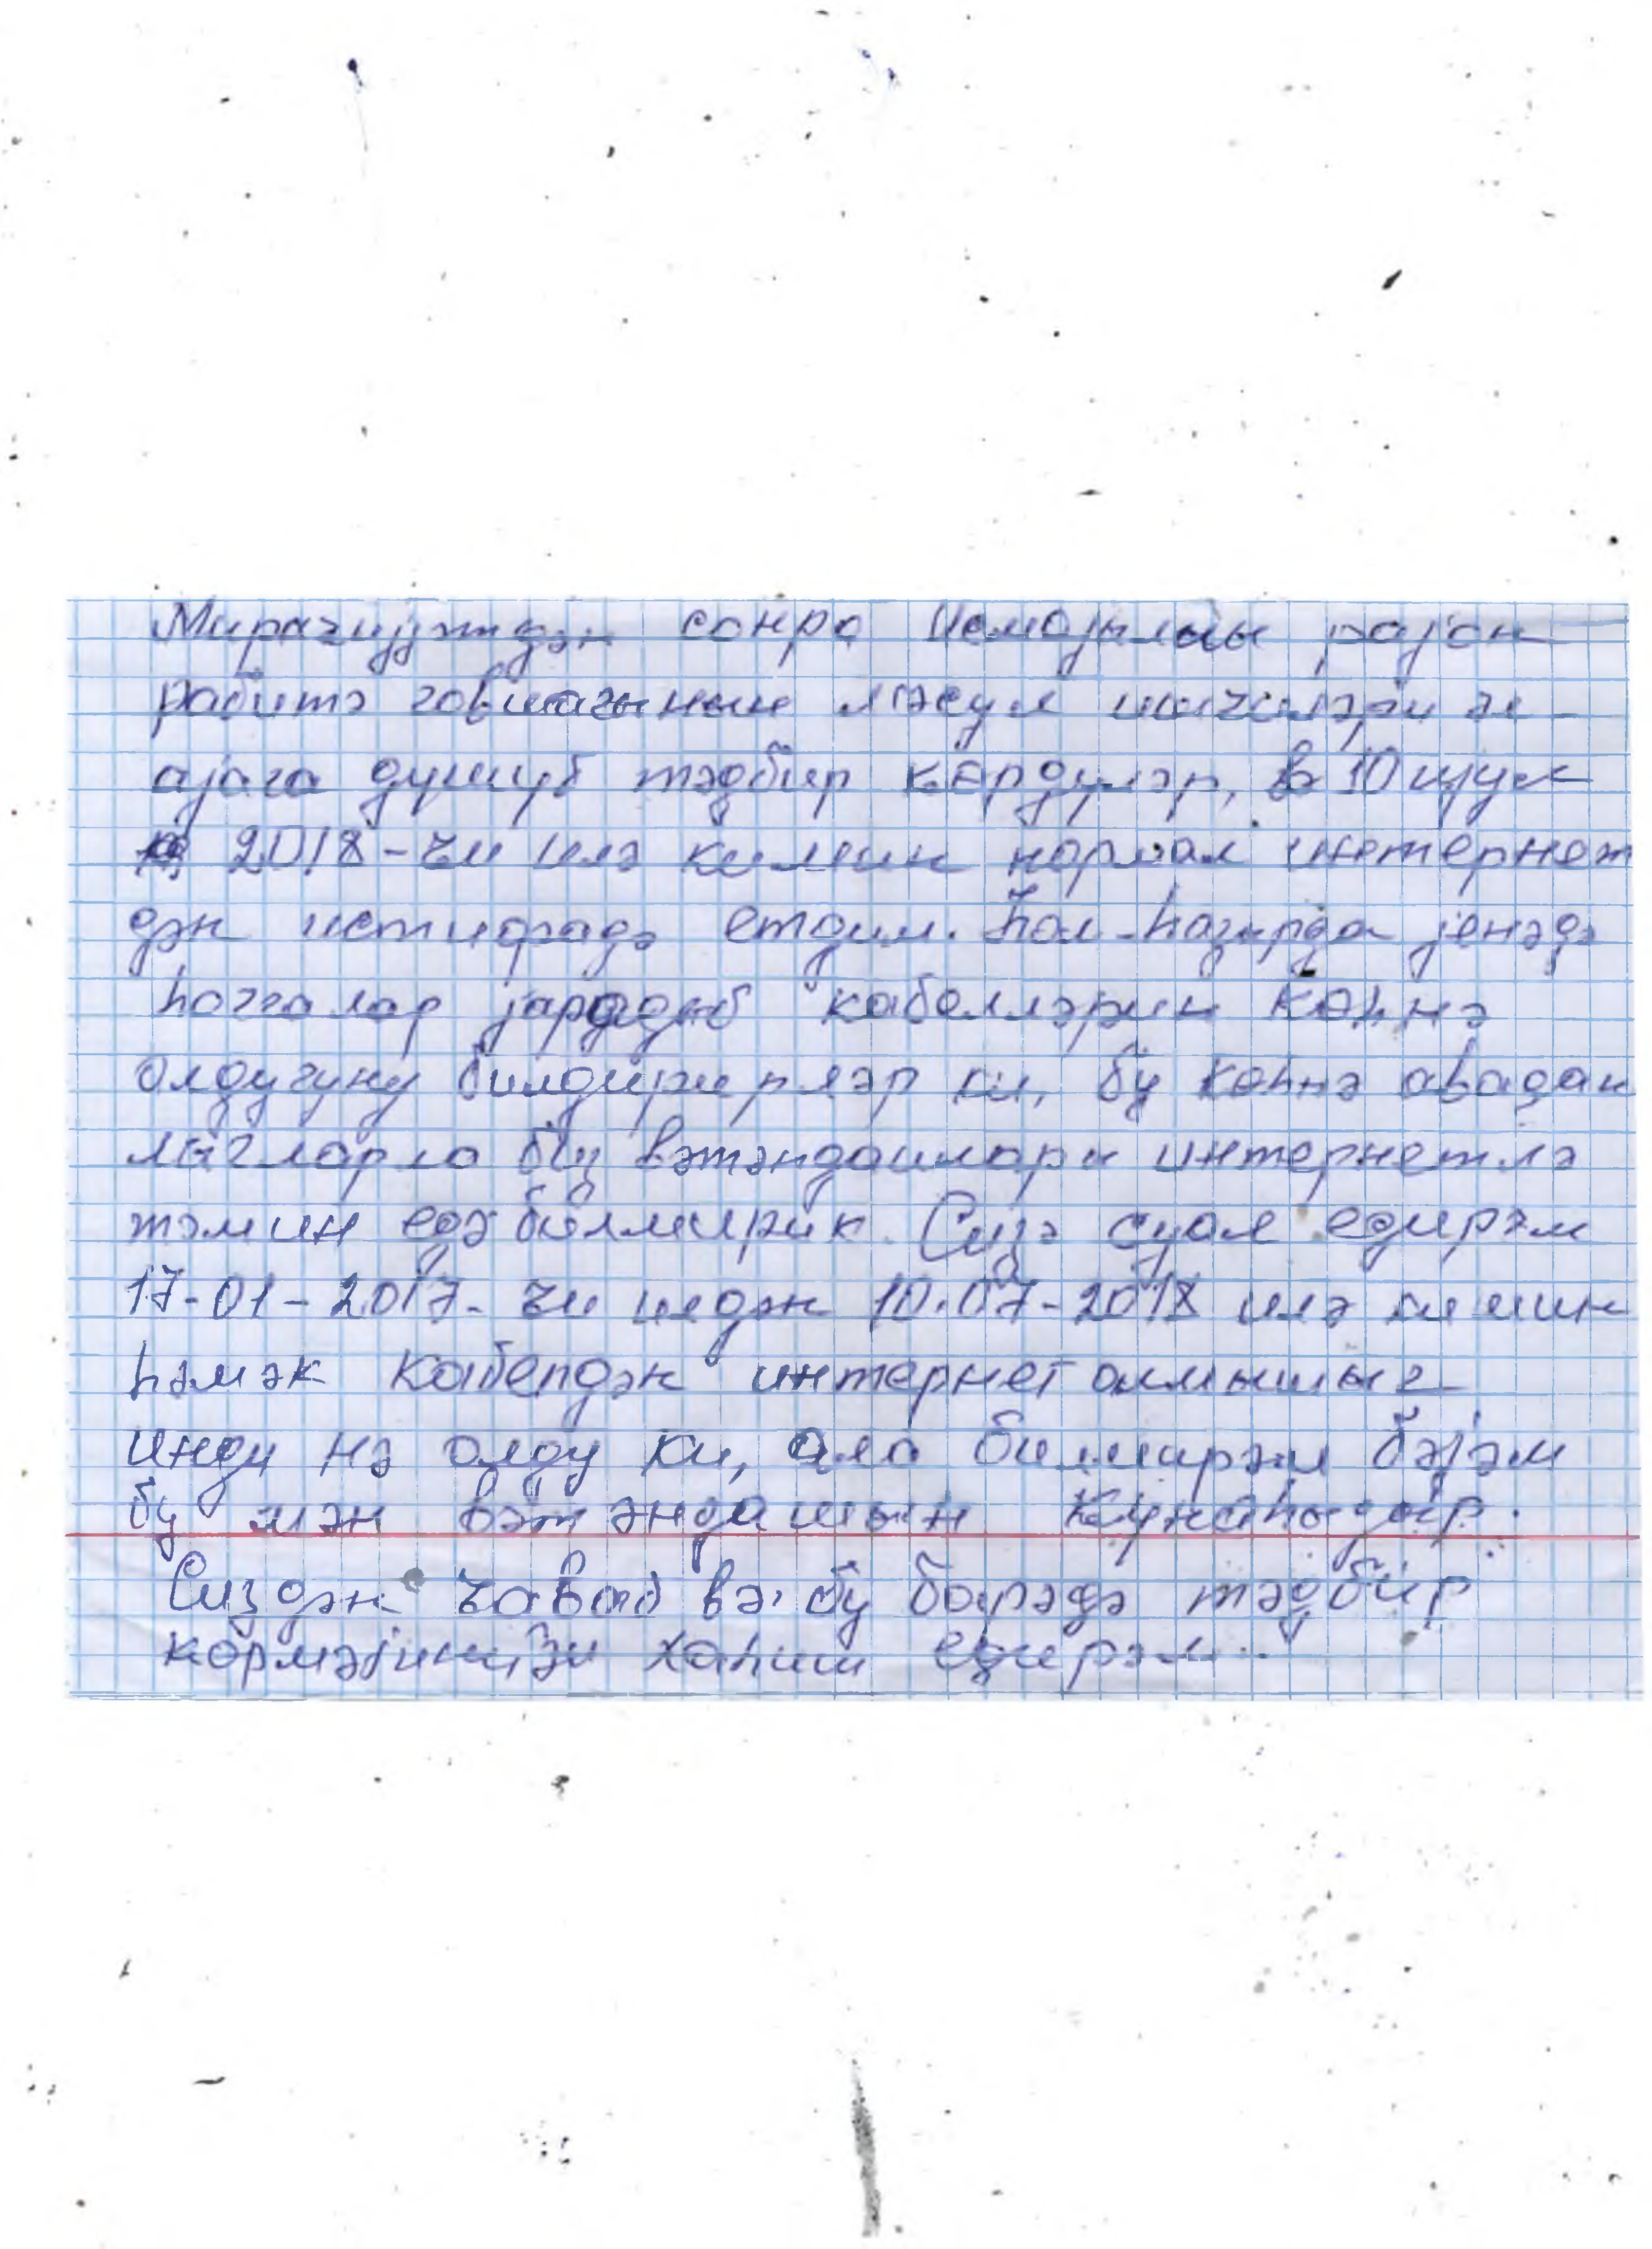 Мирачиујәтдән сонра Исмајыллы рајон
рабитә говшағынын мәсул ишчиләри әл
ајаға дүшүб тәдбир көрдүләр, 10 ијул
2018-чи илә кимин нормал интернет
дән истифадә етдим. Һал-һазырда јенәдә
һоггалар јарадыб кабелләрин көһнә
олдуғуну билдирирләр ки, бу көһнә аваدан
лыгларла биз вәтәндашлары интернетлә
тәмин едә билмирик. Сизә суал едирәм
17-01-2017-чи илдән 10.07-2018 илә кимин
һәмәк кабелдән интернет алмышыг
инди нә олду ки, ала билмирәм бәјәм
бу мән вәтәндашын күнаһыдыр.
Сиздән ҹаваб вә бу барәдә тәдбир
көрмәјинизи хаһиш едирәм.